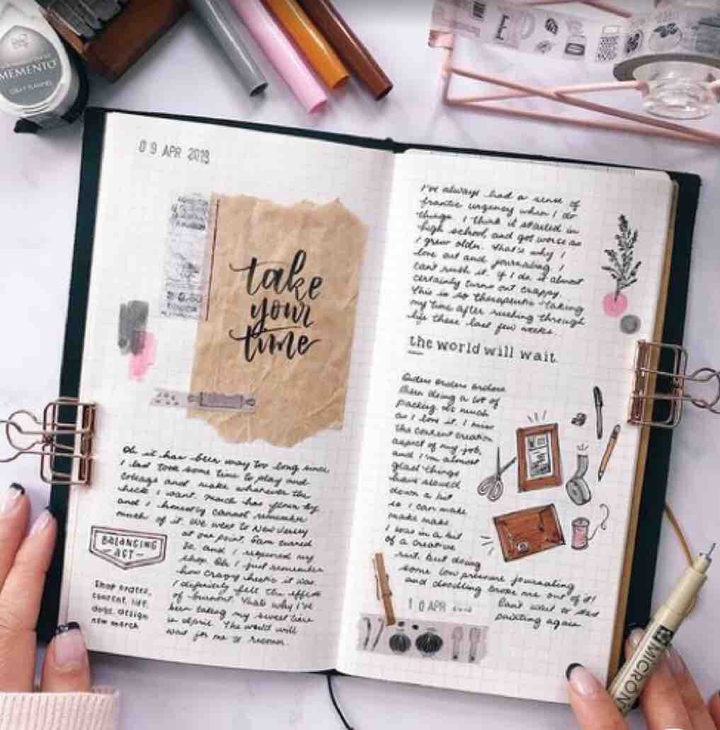 MEMENTO
09 APR 2019
take
your
time
Oh it has been way too long since
I last took some time to play and
collage and make whatever the
heck I want. Much has gone by
and I honestly cannot remember
much of it. We went to New Jersey
at one point, Sam turned
30, and I reopened my
shop. Oh I just remember
how crazy hectic it was.
I definitely felt the effects
of burnout. That's why I've
been taking my sweet time
in April. The world will
wait for me to recover.
BALANCING
ACT
Shop orders,
content, life,
dogs, design
new merch
I've always had a sense of
frantic urgency when I do
things. I think it started in
high school and got worse as
I grew older. That's why I
love art and journaling, I
can't rush it. If I do it almost
certainly turns out crappy.
This is so therapeutic - taking
my time after rushing through
life these last few weeks.
the world will wait
Orders orders orders
Been doing a lot of
packing. As much
as I love it, I miss
the content creation
aspect of my job,
and I'm almost
glad things
have slowed
down a bit
so I can make
make make
I was in a bit
of a creative
rut, but doing
some low pressure journaling
and doodling broke me out of it!
10 APR 2019
Can't wait to start
painting again.
MICRON